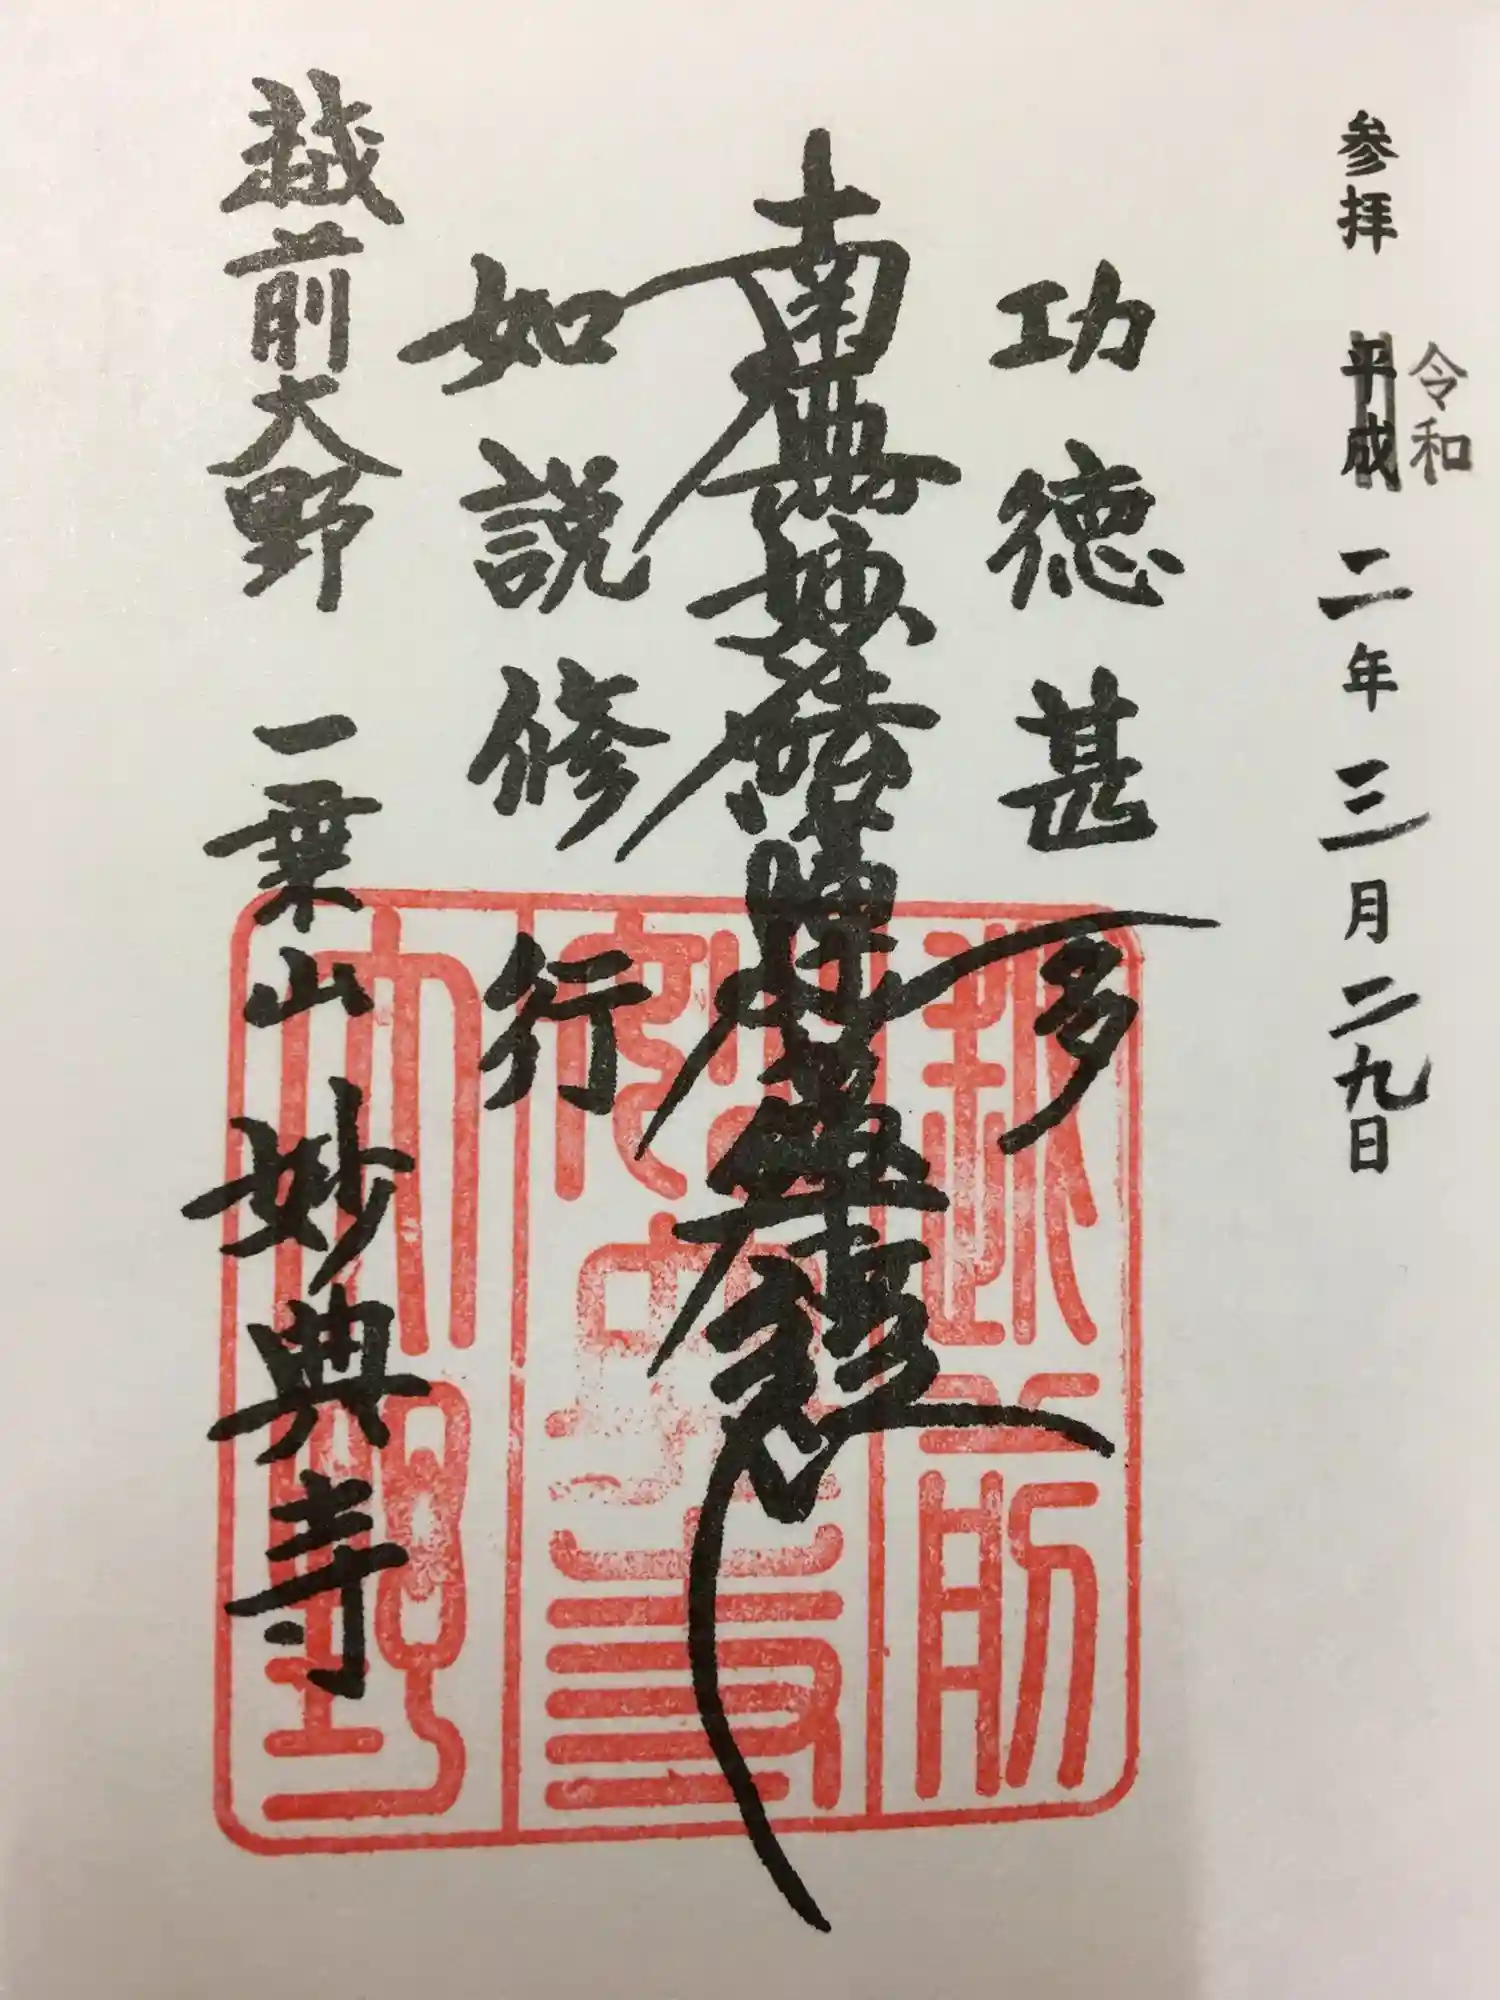 参拝 平成 二年三月二九日
令和
功徳甚多
南無妙法蓮華経
如説修行
越前大野 一乗山 妙典寺